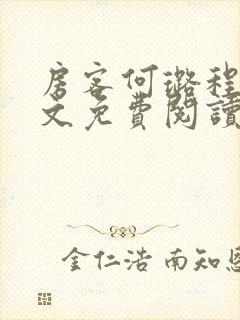 房客何璐程
文免費閱讀
金仁浩 南知恩